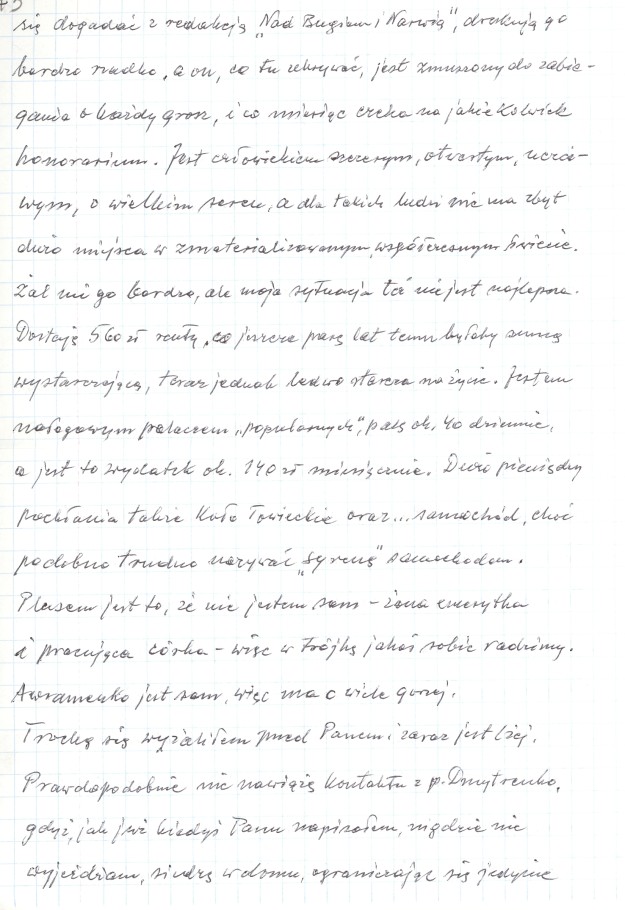 się dogadać z redakcją „Nad Bugiem i Narwią", drukują go
bardzo rzadko, a on, co tu ukrywać, jest zmuszony do zabie-
gania o każdy grosz, i co miesiąc czeka na jakiekolwiek
honorarium. Jest człowiekiem szczerym, otwartym, uczci-
wym, o wielkim sercu, a dla takich ludzi nie ma zbyt
dużo miejsca w zmaterializowanym, współczesnym świecie.
Żal mi go bardzo, ale moja sytuacja też nie jest najlepsza.
Dostaję 560 zł renty, co jeszcze parę lat temu byłoby sumą
wystarczającą, teraz jednak ledwo starcza na życie. Jestem
nałogowym palaczem „popularnych", palę ok. 40 dziennie,
a jest to wydatek ok. 140 zł miesięcznie. Dużo pieniędzy
pochłania także Koło Łowieckie oraz... samochód, choć
podobno trudno nazywać „syrenę" samochodem.
Plusem jest to, że nie jestem sam – żona emerytka
i pracująca córka – więc w trójkę jakoś sobie radzimy.
Awramenko jest sam, więc ma o wiele gorzej.
Trochę się wyżaliłem przed Panem i zaraz jest lżej.
Prawdopodobnie nie nawiążę kontaktu z p. Dmytrenko,
gdyż, jak już kiedyś Panu napisałem, nigdzie nie
wyjeżdżam, siedzę w domu, ograniczając się jedynie